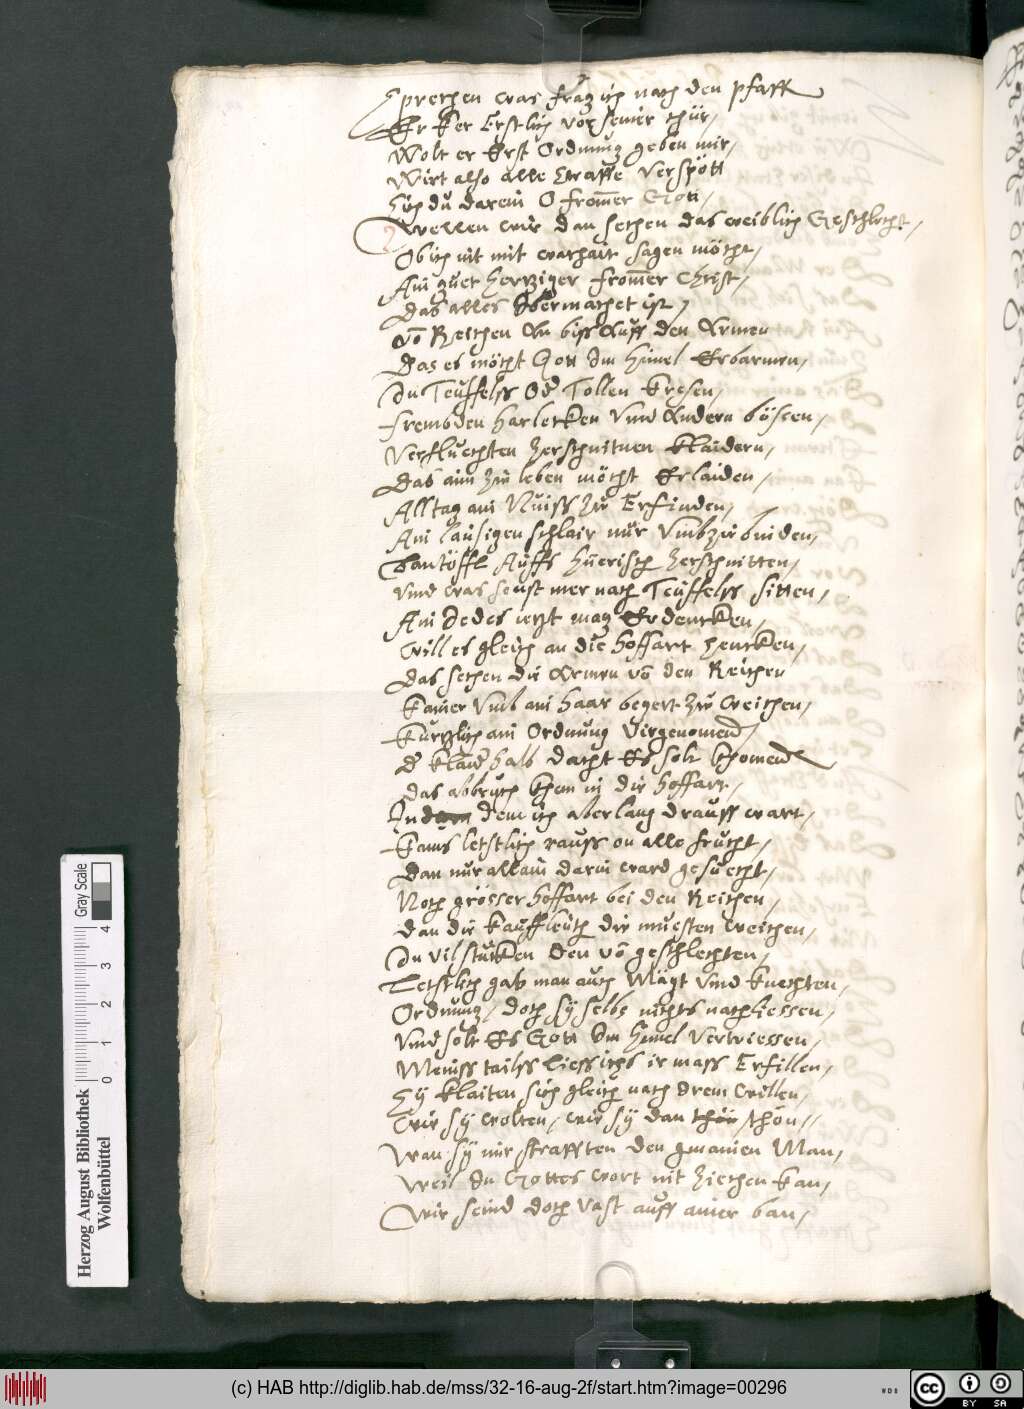 Sprechen was frag ich nach den pfaff
Er ker Erstlich vor seiner thür,
Wolt er Erst Ordnung geben mir,
Wirt also alle Straffe verspött
Sich du darein O from̄er Gott,
Wellen wir dan sechen das weiblich Geschlecht,
Ob ich nit mit warhait sagen möcht,
Ain guet hertziger from̄er Christ,
Das alles Ubermachet ist,
vō Reichen An biss Auff den Armen
Das es möcht Gott Im himel Erbarmen,
In Teuffelss Od Tollen kresen,
frembden harlecken Vnd Andern bössen,
Verfluechten Zerschnitnen klaidern,
Das aim Zu leben möcht Erlaiden,
Alltag ain Nuiss Zu Erfinden,
Ain lausigen schlair nur Vmbzubinden,
Bantöffl Auffs huerisch Zerschnitten,
Vnd was sonst mer nach Teuffelss sitten,
Ain Jedes ietzt mag Erdencken,
will es gleich an die hoffart hencken,
Das sechen die Armen vō den Reichen
kainer Vmb ain haar begert Zu weichen,
kurtzlich ain Ordnung virgenomend,
d klaid halb dacht Es solt khomend
das abbruch khem in die hoffart,
In dem ich aber lang drauff wart,
kams letstlich rauss on alle frucht,
Dan nur allain darin ward gesuecht,
Noch grösser hoffart bei den Reichen,
dan die kauffleuth die muesten weichen,
In vil stucken den vō geschlechten,
Letstlich gab man auch Mägt vnd knechten,
Ordnung, doch sy selbs nichts nachliessen,
Vnd solt Es Gott Im himel verdriessen,
Meniss tailss liess ichs ir mass Erfillen,
Sy klaiten sich gleich nach Irem willen,
wie sy wolten, wie sy dan thon,
Wan sy mir strafften den gmainen Man,
weil In Gottes wort nit Ziechen kan,
Wir seind doch vast auff ainer ban,
Herzog August Bibliothek
Wolfenbüttel
0 1 2 3 4
Gray Scale
(c) HAB http://diglib.hab.de/mss/32-16-aug-2f/start.htm?image=00296
WDB
CC BY SA